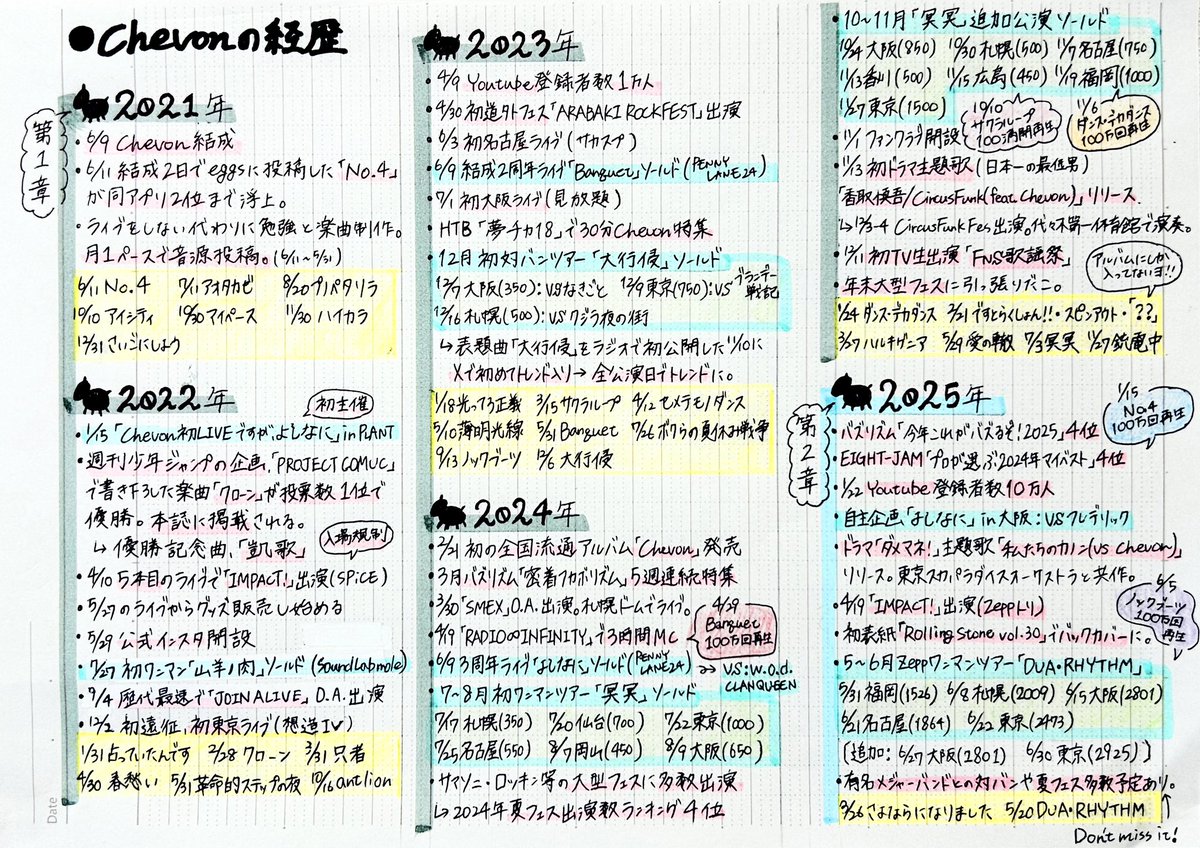 ●Chevonの経歴
第1章
2021年
・6/9 Chevon結成
・6/11 結成2日でeggsに投稿した「No.4」
が同アプリ2位まで浮上。
・ライブをしない代わりに勉強と楽曲制作。
月1ペースで音源投稿。(6/11~5/31)
6/11 No.4 7/11 アオタカゼ 8/20 プルパタリラ
10/10 アイシティ 10/30 マイペース 11/30 ハイカラ
12/31 さいごにしよう
2022年
初主催
・1/15「Chevon初LIVEですが、よしなに」in PLANT
・週刊少年ジャンプの企画、「PROJECT COMUC」
で書き下ろした楽曲「クローン」が投票数1位で
優勝。本誌に掲載される。
↳優勝記念曲、「凱歌」
入場規制
・4/10 5本目のライブで「IMPACT!」出演(SPiCE)
・5/27のライブからグッズ販売し始める
・5/29 公式インスタ開設
・7/27 初ワンマン「山羊ノ肉」ソールド(Sound Lab mole)
・9/4 歴代最速で「JOIN ALIVE」O.A.出演
・12/2 初遠征、初東京ライブ(想造Ⅳ)
1/31 占っていたんです 2/28 クローン 3/31 只者
4/30 春愁い 5/31 革命的ステップの夜 10/16 antlion
2023年
・4/9 Youtube登録者数1万人
・4/30 初道外フェス「ARABAKI ROCKFEST」出演
・6/3 初名古屋ライブ(サカスプ)
・6/9 結成2周年ライブ「Banquet」ソールド(PENNY LANE24)
・7/1 初大阪ライブ(見放題)
・HTB「夢チカ18」で30分Chevon特集
・12月 初対バンツアー「大行侵」ソールド
12/7 大阪(350):VSなきごと 12/9 東京(750):VS ブランデー戦記
12/16 札幌(500):VSクジラ夜の街
↳表題曲「大行侵」をラジオで初公開した11/10に
Xで初めてトレンド入り→全公演日でトレンドに。
1/18 光ってろ正義 3/15 サクラループ 4/12 セメテモノダンス
5/10 薄明光線 5/31 Banquet 7/26 ボクらの夏休み戦争
9/13 ノックブーツ 12/6 大行侵
2024年
・2/21 初の全国流通アルバム「Chevon」発売
・3月 バズリズム「密着フカボリズム」5週連続特集
・3/30「SMEX」O.A.出演。札幌ドームでライブ。
・4/19「RADIO∞INFINITY」で3時間MC
4/29
Banquet
100万回再生
・6/9 3周年ライブ「よしなに」ソールド(PENNY LANE24)
→ VS:w.o.d.
CLAN QUEEN
・7~8月 初ワンマンツアー「冥冥」ソールド
7/17 札幌(350) 7/20 仙台(700) 7/22 東京(1000)
7/25 名古屋(550) 8/7 岡山(450) 8/9 大阪(650)
・サマソニ・ロッキン等の大型フェスに多数出演
↳2024年夏フェス出演数ランキング4位
・10~11月「冥冥」追加公演 ソールド
10/24 大阪(850) 10/30 札幌(500) 11/7 名古屋(750)
11/13 香川(500) 11/15 広島(450) 11/19 福岡(1000)
11/27 東京(1500)
10/10
サクラループ
100満開再生
11/6
ダンス・デカダンス
100万回再生
・11/1 ファンクラブ開設
・11/13 初ドラマ主題歌(日本一の最低男)
「香取慎吾/Circus Funk(feat. Chevon)」リリース
↳12/3-4 Circus Funk Fes 出演。代々木第一体育館で演奏。
・12/11 初TV生出演「FNS歌謡祭」
・年末大型フェスに引っ張りだこ。
アルバムにしか
入ってないヨ!!
1/24 ダンス・デカダンス 2/21 ですとらくしょん!!・スピンアウト・「??」
3/27 ハルキゲニア 5/29 愛の轍 7/3 冥冥 11/27 銃電中
第2章
2025年
1/15
No.4
100万回再生
・バズリズム「今年これがバズるぞ!2025」4位
・EIGHT-JAM「プロが選ぶ2024年マイベスト」4位
・1/22 Youtube登録者数10万人
・自主企画「よしなに」in大阪:VSフレデリック
・ドラマ「ダメマネ!」主題歌「私たちのカノン(VS Chevon)」
リリース。東京スカパラダイスオーケストラと共作。
6/5
ノックブーツ
100万回
再生
・4/19「IMPACT!」出演(Zeppトリ)
・初表紙「Rolling Stone vol.30」でバックカバーに。
・5~6月Zeppワンマンツアー「DUA・RHYTHM」
5/31 福岡(1526) 6/8 札幌(2009) 6/15 大阪(2801)
6/21 名古屋(1864) 6/22 東京(2473)
〔追加: 6/27 大阪(2801) 6/30 東京(2925)〕
・有名メジャーバンドとの対バンや夏フェス多数予定あり。
3/26 さよならになりました 5/20 DUA・RHYTHM
Don't miss it!
Date